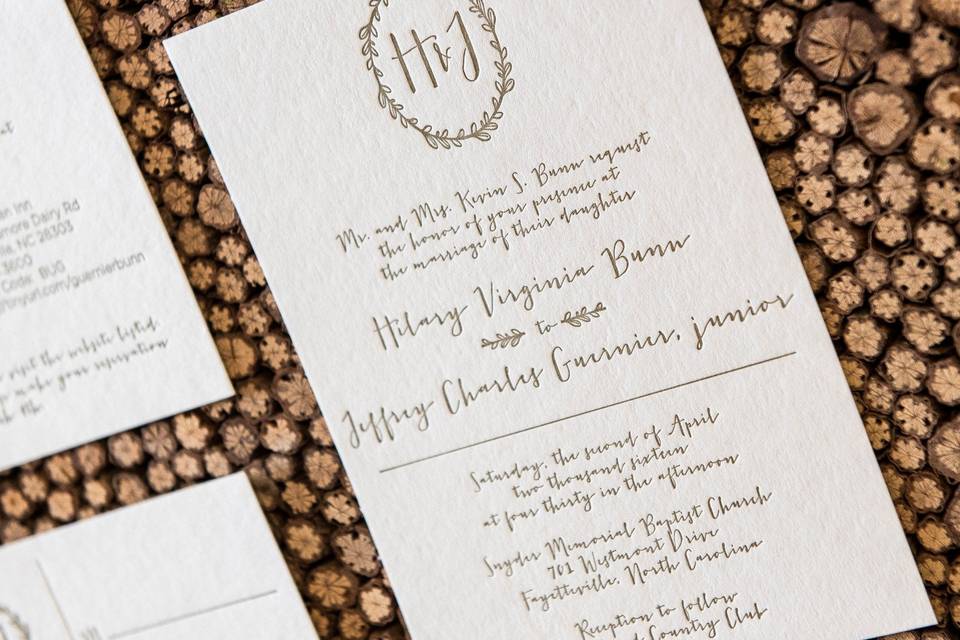 H&J
Mr. and Mrs. Kevin S. Bunn request
the honor of your presence at
the marriage of their daughter
Hilary Virginia Bunn
to
Jeffrey Charles Guernier, junior
Saturday, the second of April
two thousand sixteen
at four thirty in the afternoon
Snyder Memorial Baptist Church
701 Westmont Drive
Fayetteville, North Carolina
Reception to follow
Country Club
Inn
Dairy Rd
NC 28303
3600
Code BUG
tinyurl.com/guernierbunn
visit the website listed
make your reservation